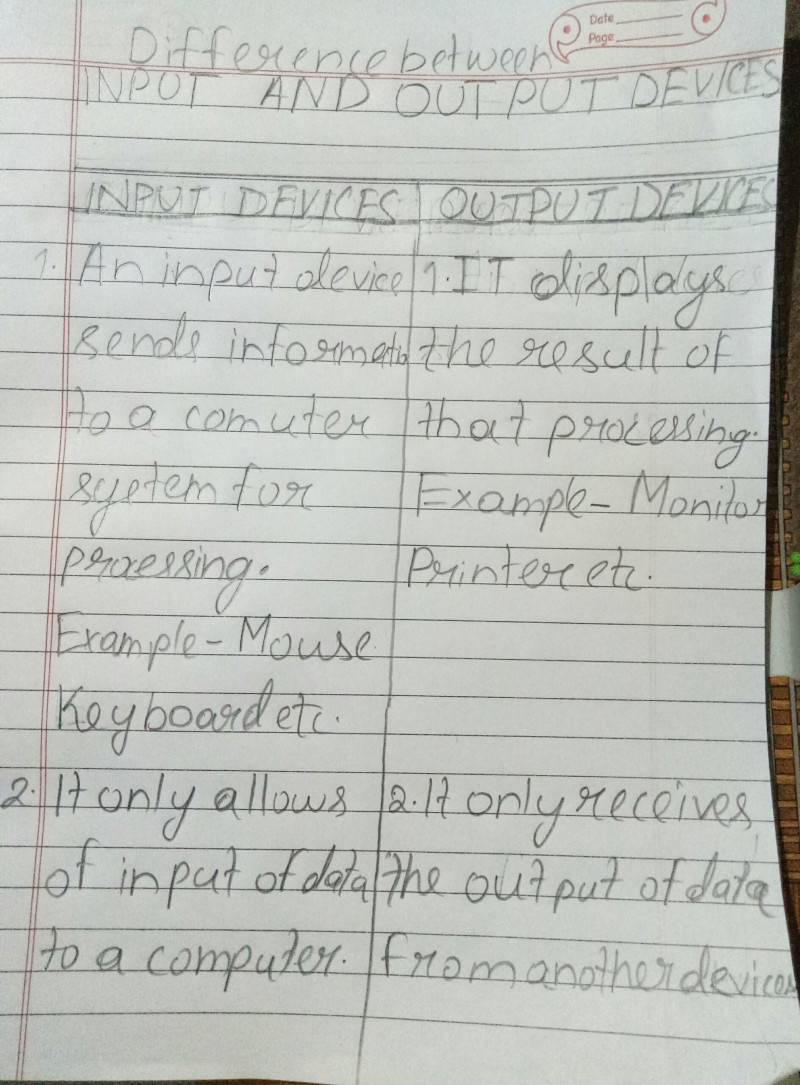 Date
Page
Difference between
INPUT AND OUTPUT DEVICES
INPUT DEVICES
1. An input device
sends informatio
to a comuter
system for
processing.
Example - Mouse
Keyboard etc.
2. It only allows
of input of data
to a computer.
OUTPUT DEVICES
1. IT displays
the result of
that processing.
Example - Monitor
Printer etc.
2. It only receives
the output of data
from another devices